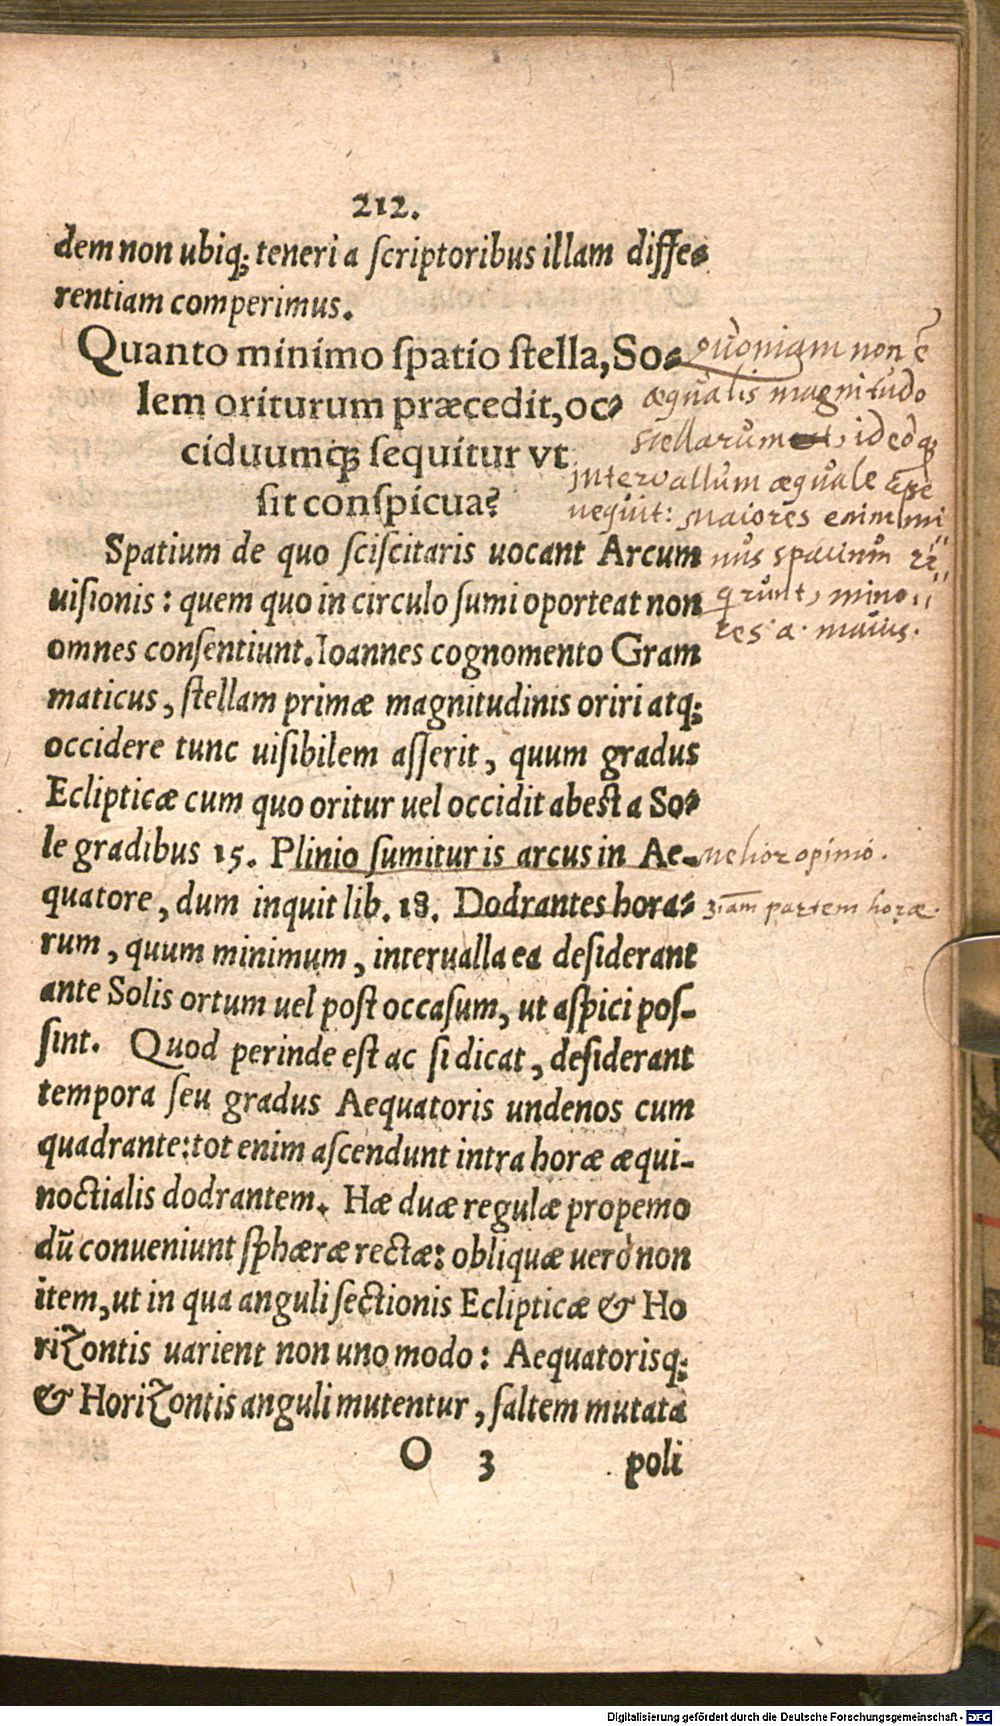 212.
dem non ubiq; teneri a scriptoribus illam diffe-
rentiam comperimus.
Quanto minimo spatio stella, So-
lem oriturum præcedit, oc-
ciduumq; sequitur vt
sit conspicua?
Spatium de quo sciscitaris uocant Arcum
uisionis: quem quo in circulo sumi oporteat non
omnes consentiunt. Ioannes cognomento Gram
maticus, stellam primæ magnitudinis oriri atq;
occidere tunc uisibilem asserit, quum gradus
Eclipticæ cum quo oritur uel occidit abest a So-
le gradibus 15. Plinio sumitur is arcus in Ae-
quatore, dum inquit lib. 18. Dodrantes hora-
rum, quum minimum, interualla ea desiderant
ante Solis ortum uel post occasum, ut aspici pos-
sint. Quod perinde est ac si dicat, desiderant
tempora seu gradus Aequatoris undenos cum
quadrante: tot enim ascendunt intra horæ æqui-
noctialis dodrantem. Hæ duæ regulæ propemo
dū conueniunt sphæræ rectæ: obliquæ uerò non
item, ut in qua anguli sectionis Eclipticæ & Ho
rizontis uarient non uno modo: Aequatorisq;
& Horizontis anguli mutentur, saltem mutata
O 3 poli
quoniam non ē
æqualis magnitudo
stellarum, ideoq;
intervallum æquale
nequit: maiores enim mi
nus spatium re
qrunt, mino
res a. maius.
melior opinio.
3iam partem horæ.
Digitalisierung gefördert durch die Deutsche Forschungsgemeinschaft - DFG